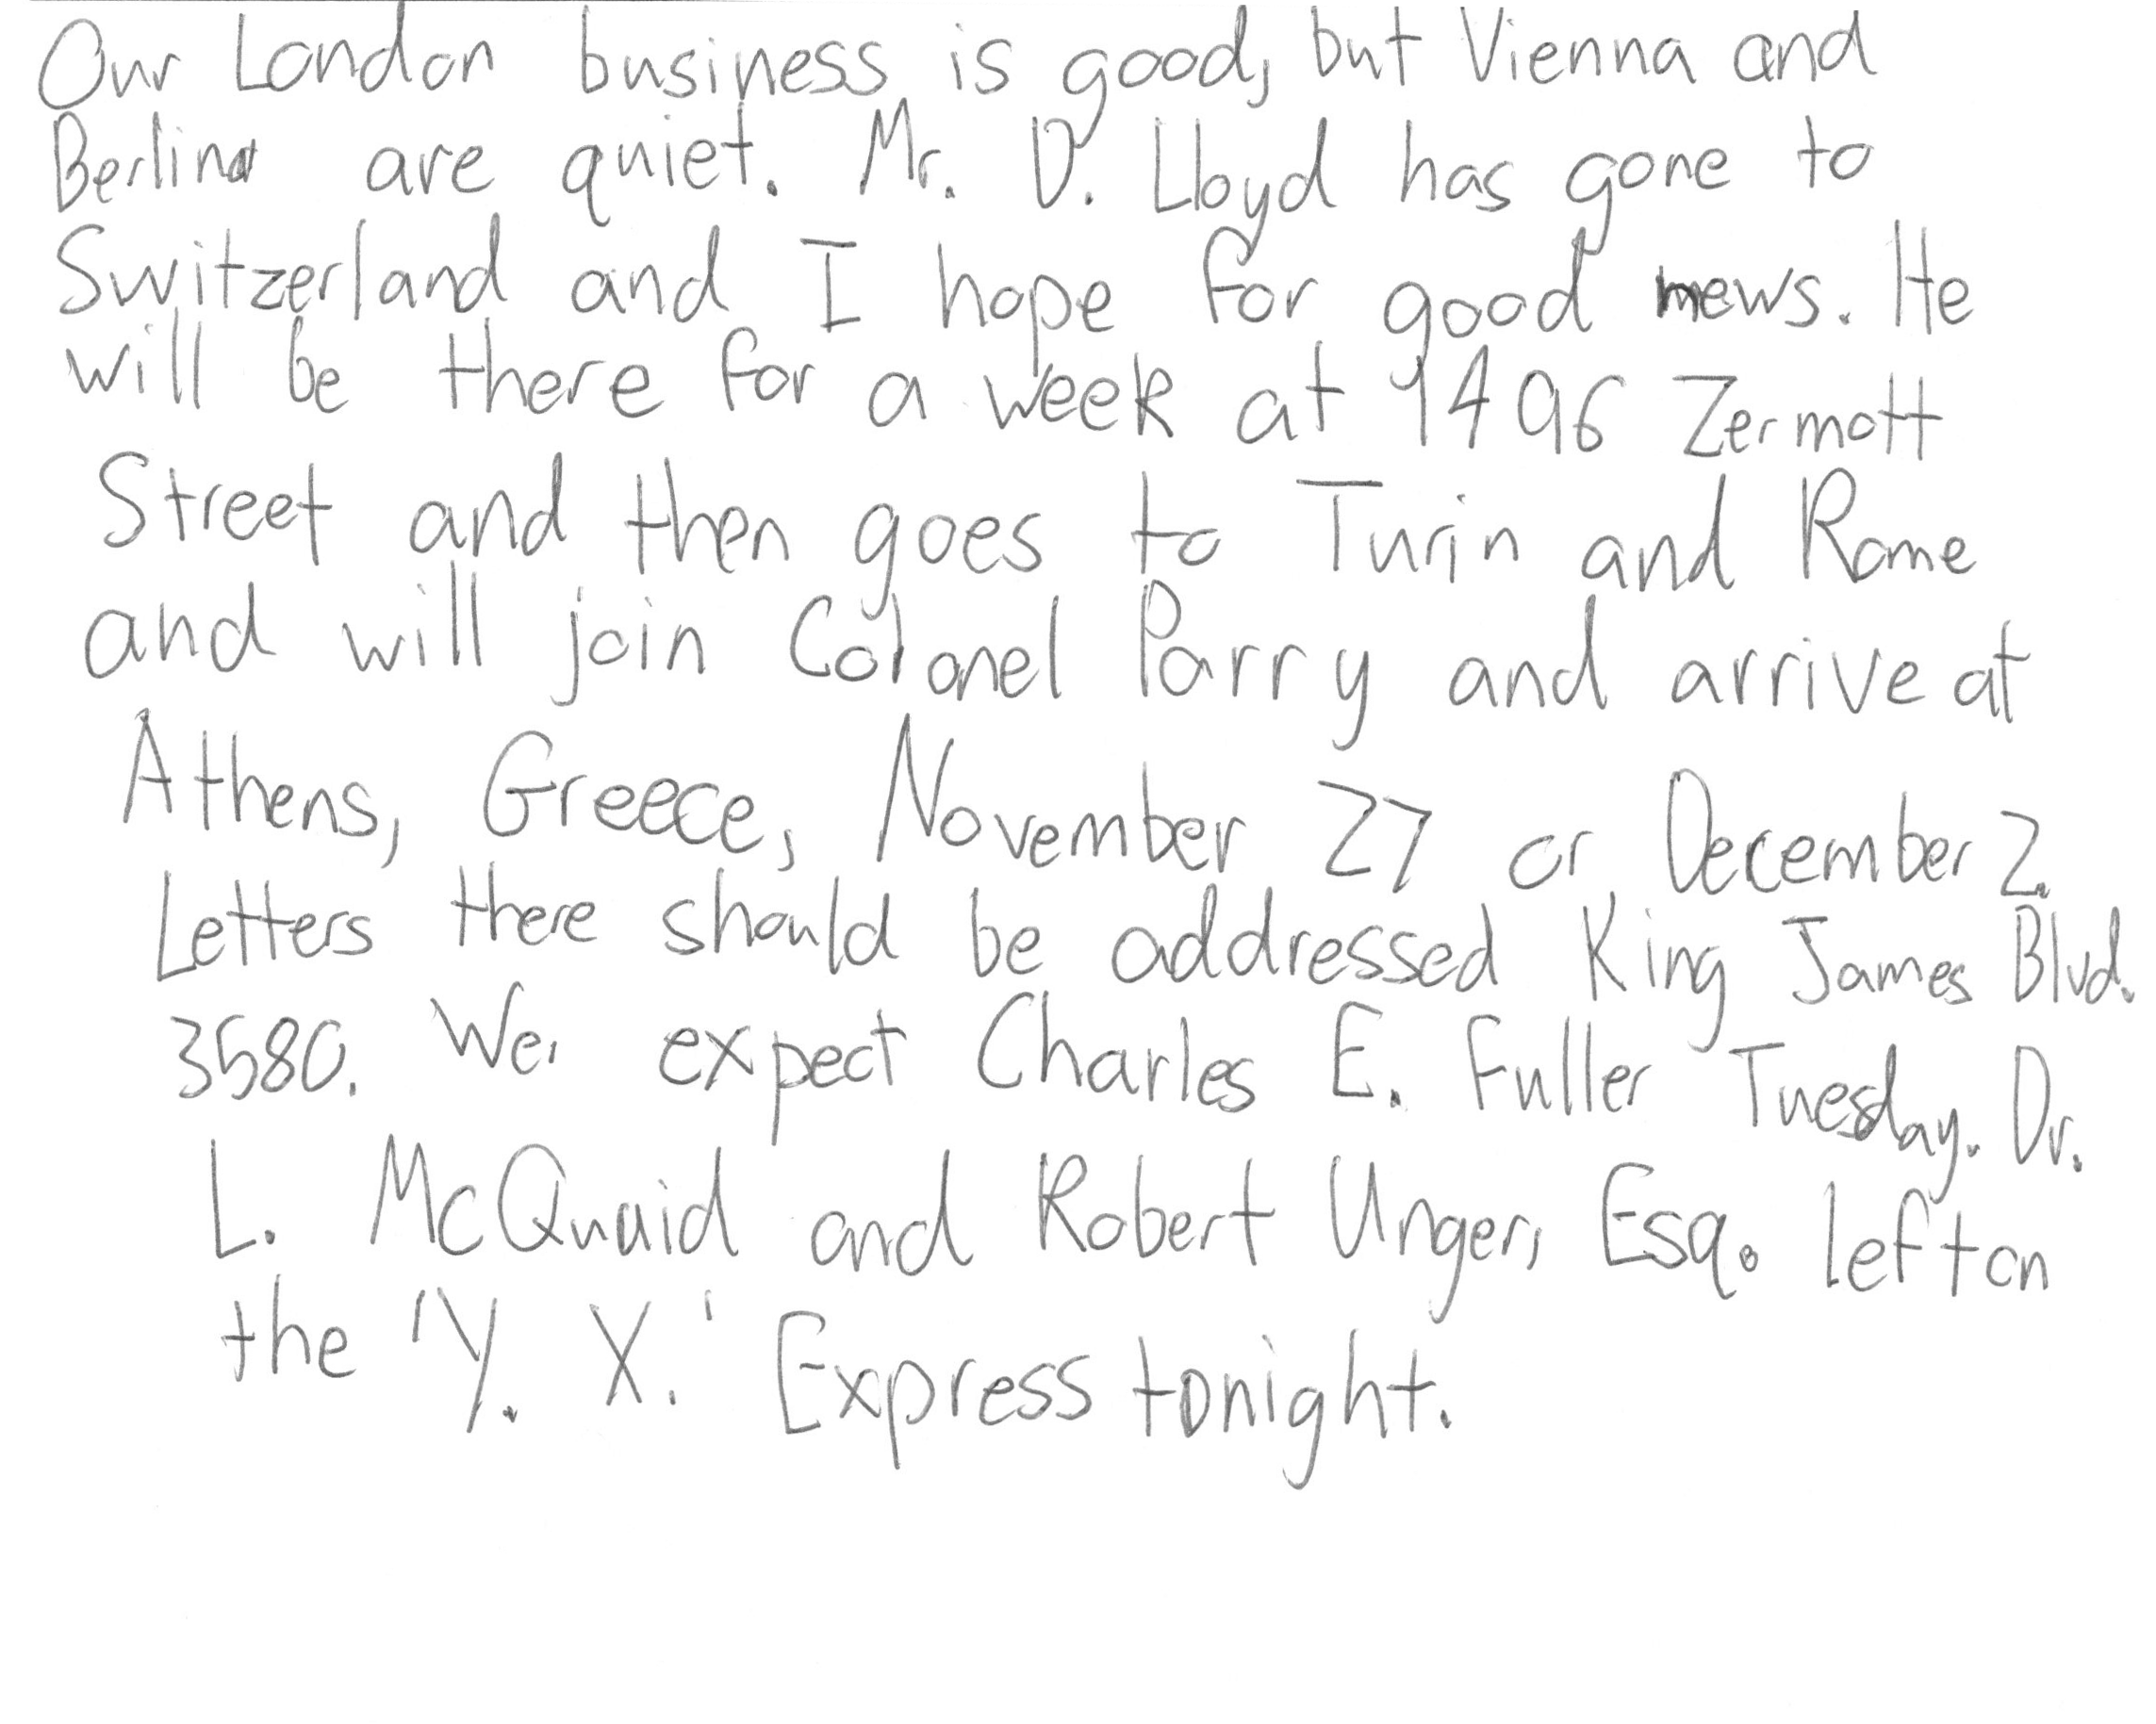 Our London business is good, but Vienna and
Berlin are quiet. Mr. D. Lloyd has gone to
Switzerland and I hope for good news. He
will be there for a week at 9496 Zermott
Street and then goes to Turin and Rome
and will join Colonel Parry and arrive at
Athens, Greece, November 27 or December 2.
Letters there should be addressed King James Blvd.
3580. We expect Charles E. Fuller Tuesday. Dr.
L. McQuaid and Robert Unger, Esq. left on
the 'Y. X.' Express tonight.